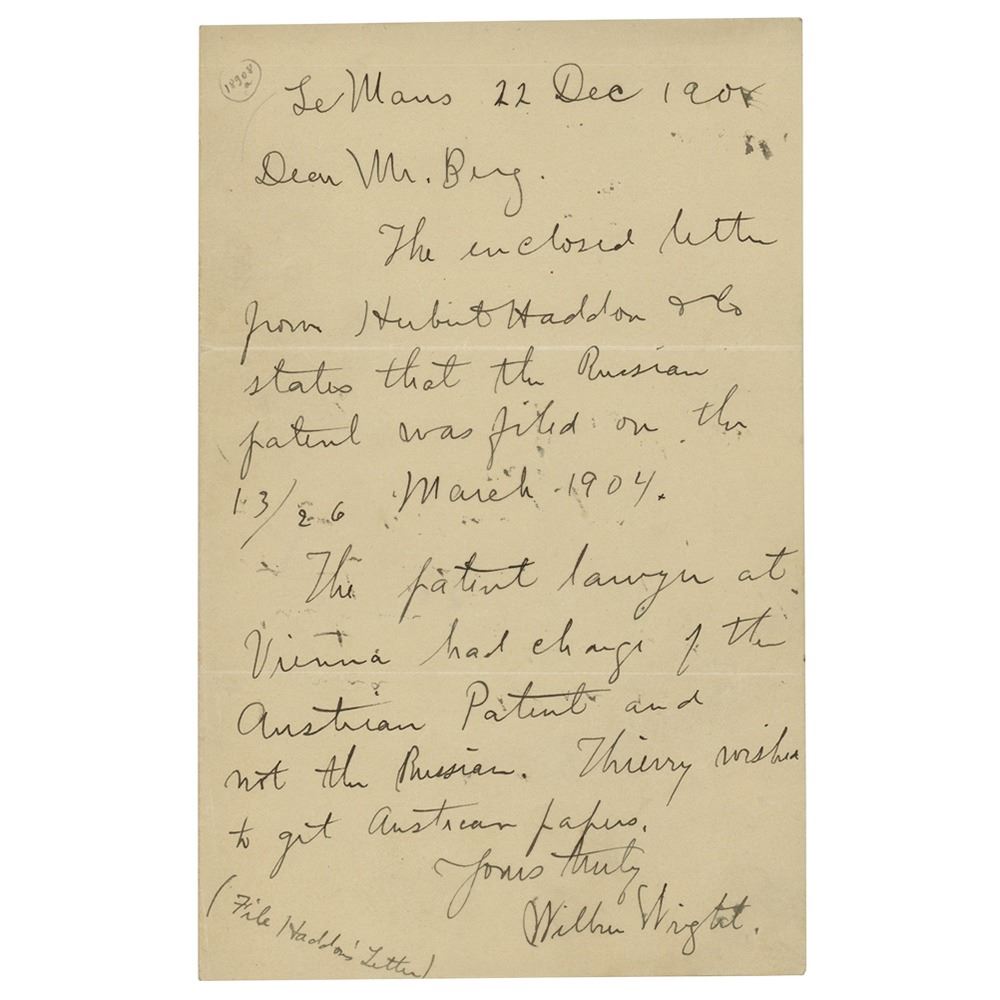 18908
a
Le Mans 22 Dec 1908
Dear Mr. Berg.
The enclosed letter
from Herbert Haddon & Co
states that the Russian
patent was filed on the
13/26 March 1904.
The patent lawyer at
Vienna had charge of the
Austrian Patent and
not the Russian. Thierry wished
to get Austrian papers.
Yours truly
Wilbur Wright.
(File Haddons' Letter)